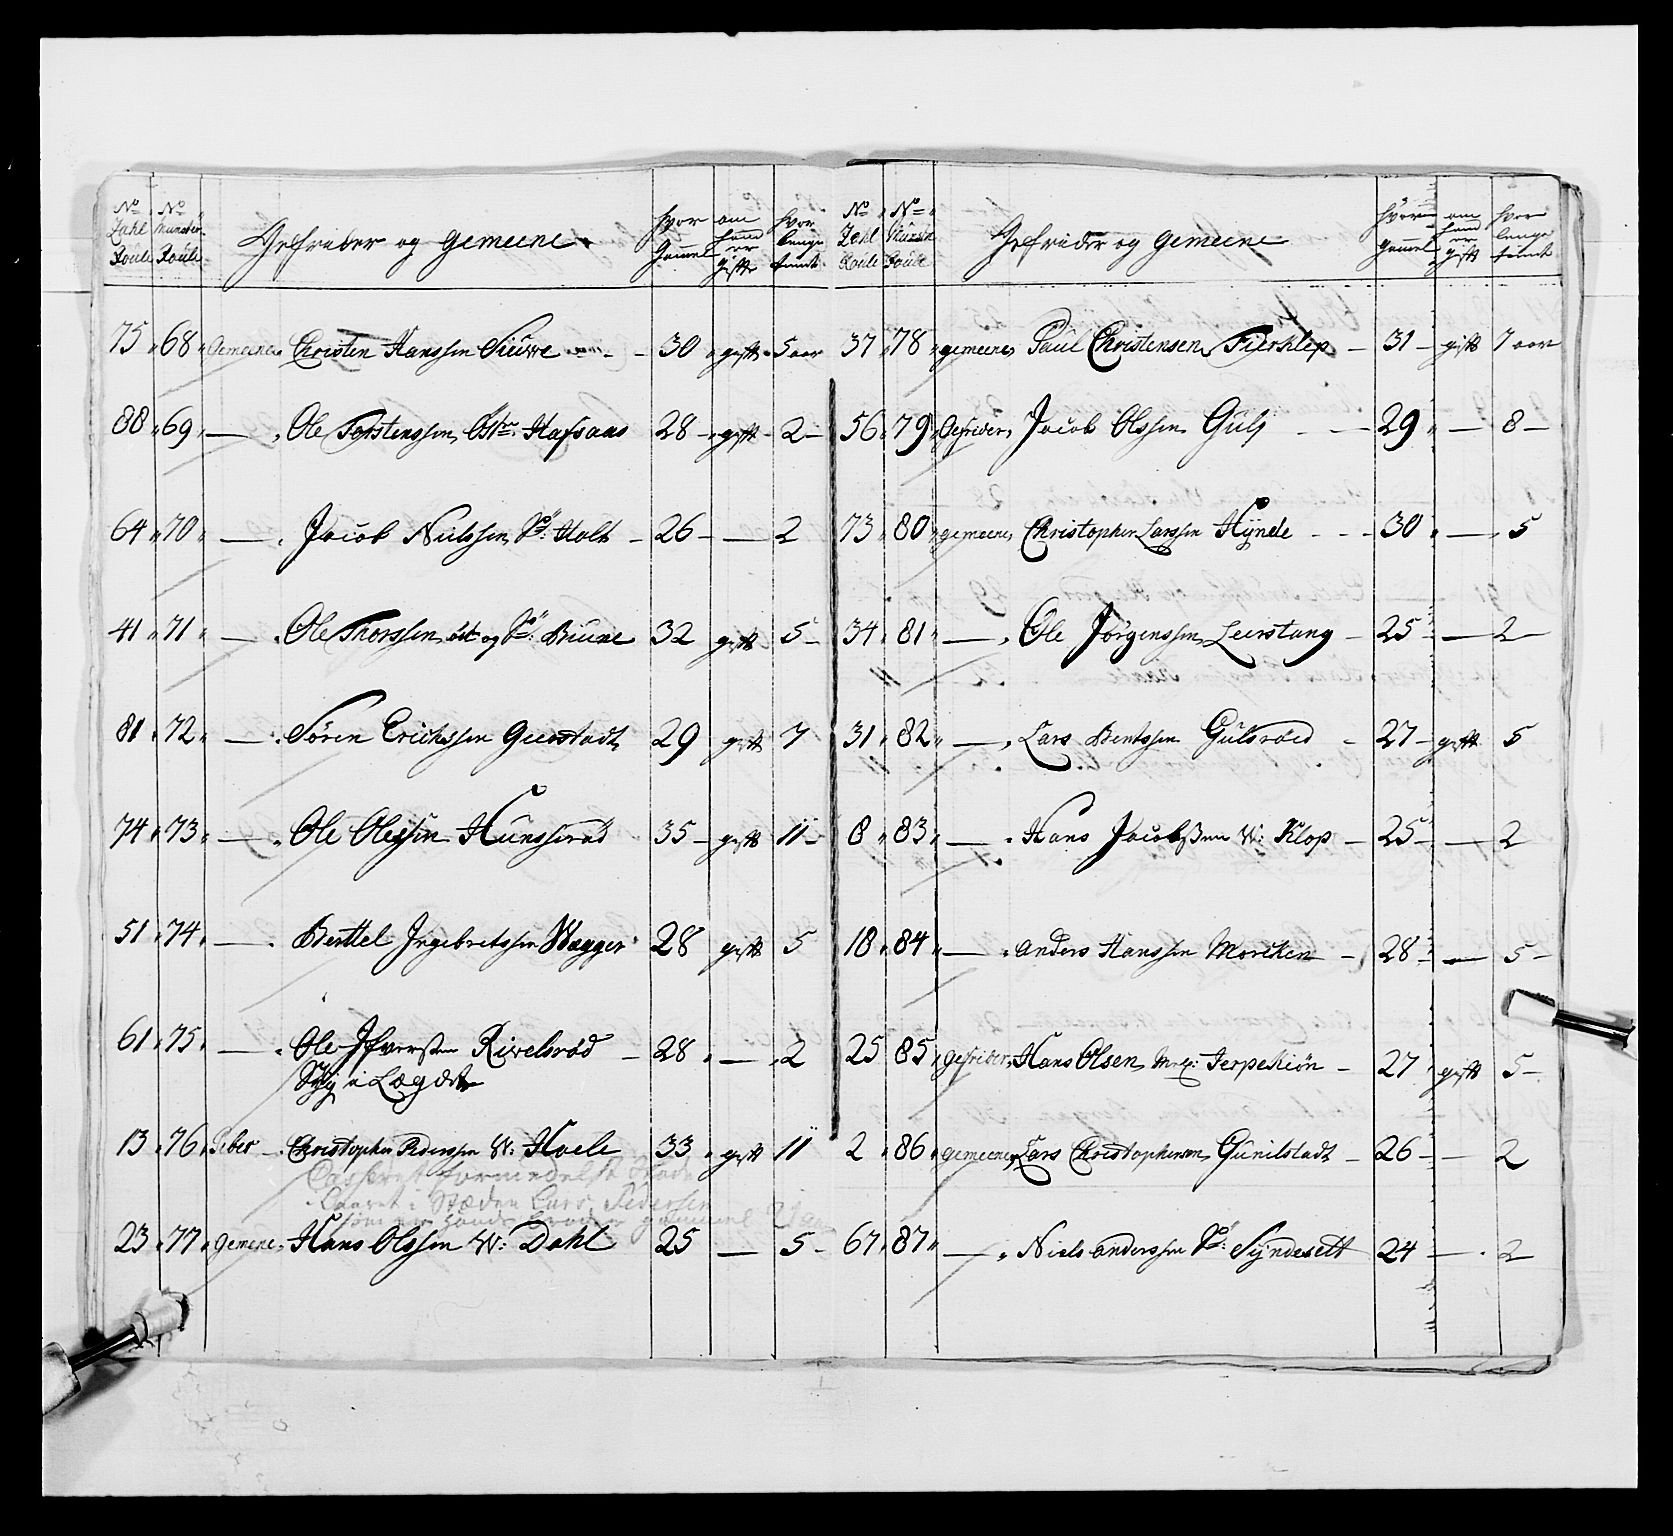 No Zahl Roule No Munster Roule Gefreider og Gemeene hvor Gammel om hand er gift hvor lenge tient
75 68 Gemeene Christen Hanssen Siuwe 30 gift 5 aar
88 69 — Ole Torstenssen Østr Hafsaas 28 gift 2
64 70 — Jacob Nielssen Holt 26 — 2
41 71 — Ole Thorssen og Bruune 32 gift 5
81 72 — Søren Erichssen Geerstadt 29 gift 7
74 73 — Ole Olessen Hunsserød 35 gift 11
51 74 — Berttel Ingebretssen Wegger 28 gift 5
61 75 — Ole Ifwerssen Riwelsrød 28 — 2
Syg i Lægdet
13 76 Christopher Pederssen W: Hoele 33 gift 11
Casseret formedelst
i Stæden Lars Pedersen
som er hands broder gammel 21 aar
23 77 Gemene Hans Olssen W: Dahl 25 — 5
No Zahl Roule No Munstr Roule Gefreider og Gemeene hvor Gammel om hand er gift hvor lenge tient
37 78 gemeene Paul Christensen Fierklep 31 gift 7 aar
56 79 Gefreider Jacob Olssen Gulj 29 — 8
73 80 gemeene Christopher Larssen Hynde 30 — 5
34 81 — Ole Jørgenssen Leerstang 25 — 2
31 82 — Lars Bentssen Gulsrød 27 gift 5
8 83 — Hans Jacobssen W: Klop 25 — 2
18 84 — Anders Hanssen Morcken 28 — 5
25 85 gefreider Hans Olsen Jerpekiøn 27 gift 5
2 86 gemeene Lars Christophersen Gunilstadt 26 — 2
67 87 — Niels Anderssen Syndesett 24 — 2